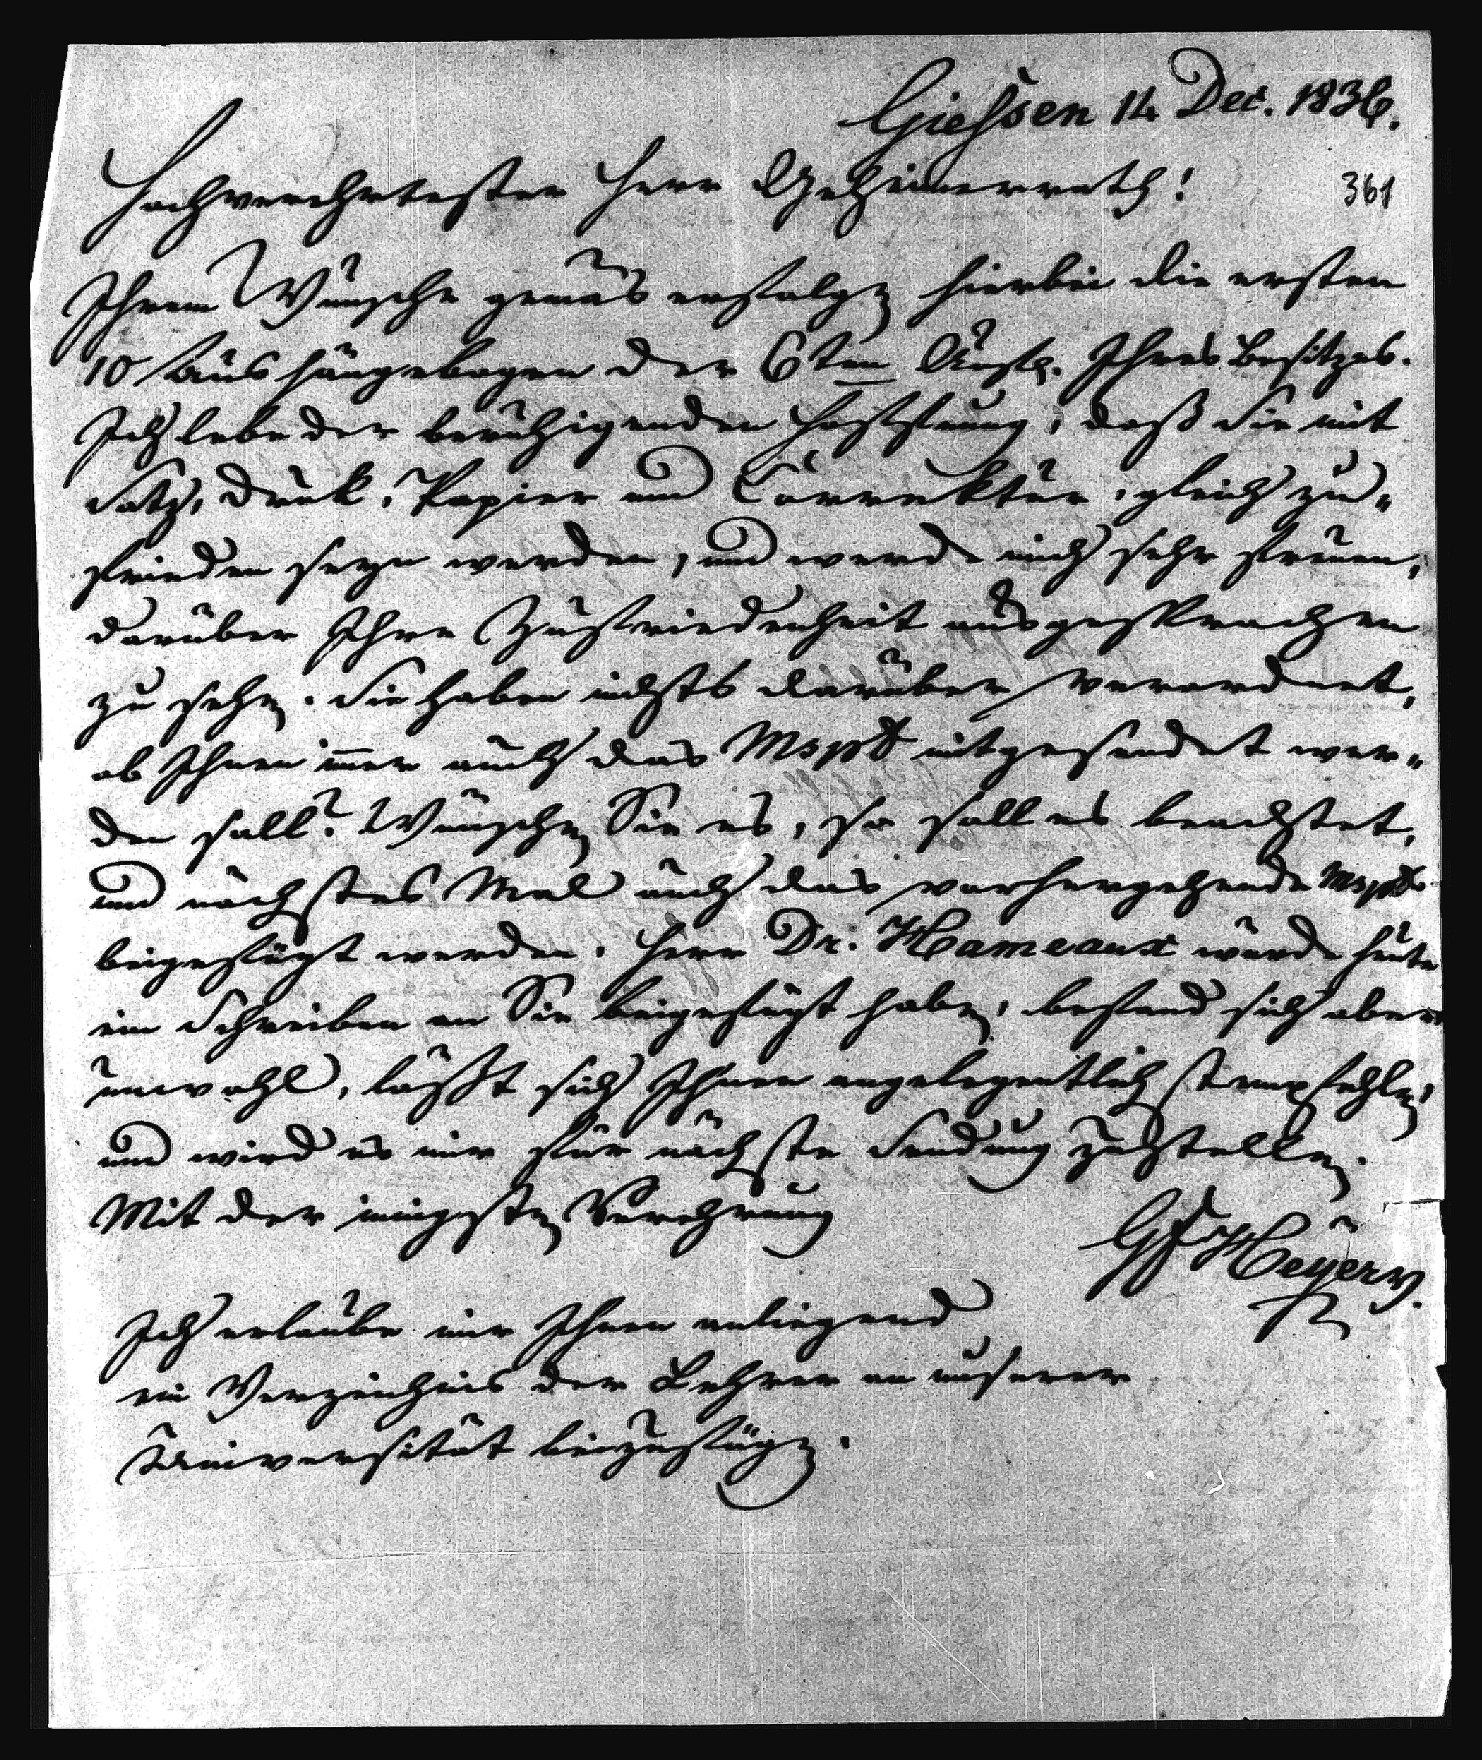 Giessen 14 Dec. 1836.
Hochverehrtester Herr Geheimerrath!
361
Ihrem Wunsche gemäs erfolgen hierbei die ersten
10 Aushängebogen der 6ten Aufl. Ihres Besitzes.
Ich lebe der beruhigenden Hoffnung, daß Sie mit
Satz, Druk, Papier und Correktur, gleich zu„
frieden seyn werden, und werde mich sehr freuen,
darüber Ihre Zufriedenheit ausgesprochen
zu sehen. Sie haben nichts darüber verordnet,
ob Ihnen immer auch das Mspt mitgesendet wer„
den soll? Wünschen Sie es, so soll es beachtet,
und nächstes Mal auch das vorhergehende Mspt
beigefügt werden. Herr Dr. Hameaux würde heute
ein Schreiben an Sie beigefügt haben, befand sich aber
unwohl, läßt sich Ihnen angelegentlichst empfehlen,
und wird es mir für nächste Sendung zustellen.
Mit der innigsten Verehrung
GF Heyer v.
Ich erlaube mir Ihnen anliegend
ein Verzeichnis der Lehrer an unserer
Universität beizufügen.